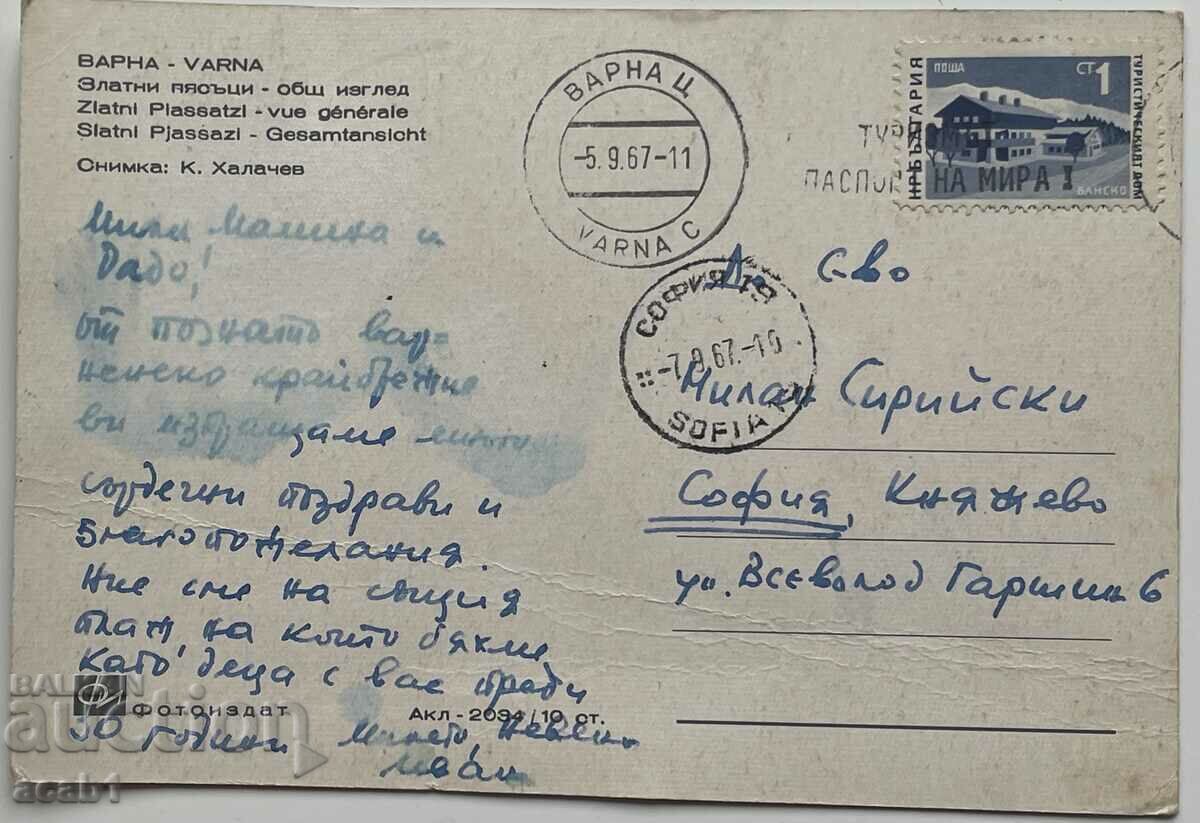 ВАРНА - VARNA
Златни пясъци - общ изглед
Zlatni Piassatzi - vue générale
Slatni Pjassazi - Gesamtansicht
Снимка: К. Халачев
ВАРНА Ц
-5.9.67-11
VARNA C
НРБЪЛГАРИЯ
ПОЩА
СТ 1
ТУРИСТИЧЕСКИЯТ ДОМ
БАНСКО
НА МИРА!
СОФИЯ
-7.9.67.-16
SOFIA
Мили Мамика и
Дадо!
от познато вар=
ненско крайбрежие
ви изпращаме
сърдечни поздрави и
благопожелания.
Ние сме на същия
плаж, на който бяхме
като деца с вас преди
30 години
Иван
До С-во
Милан Сирийски
София, Княжево
ул. Всеволод Гаршин 6
Фотоиздат
Акл-2034/10 ст.
BALKAN
auction
acab1